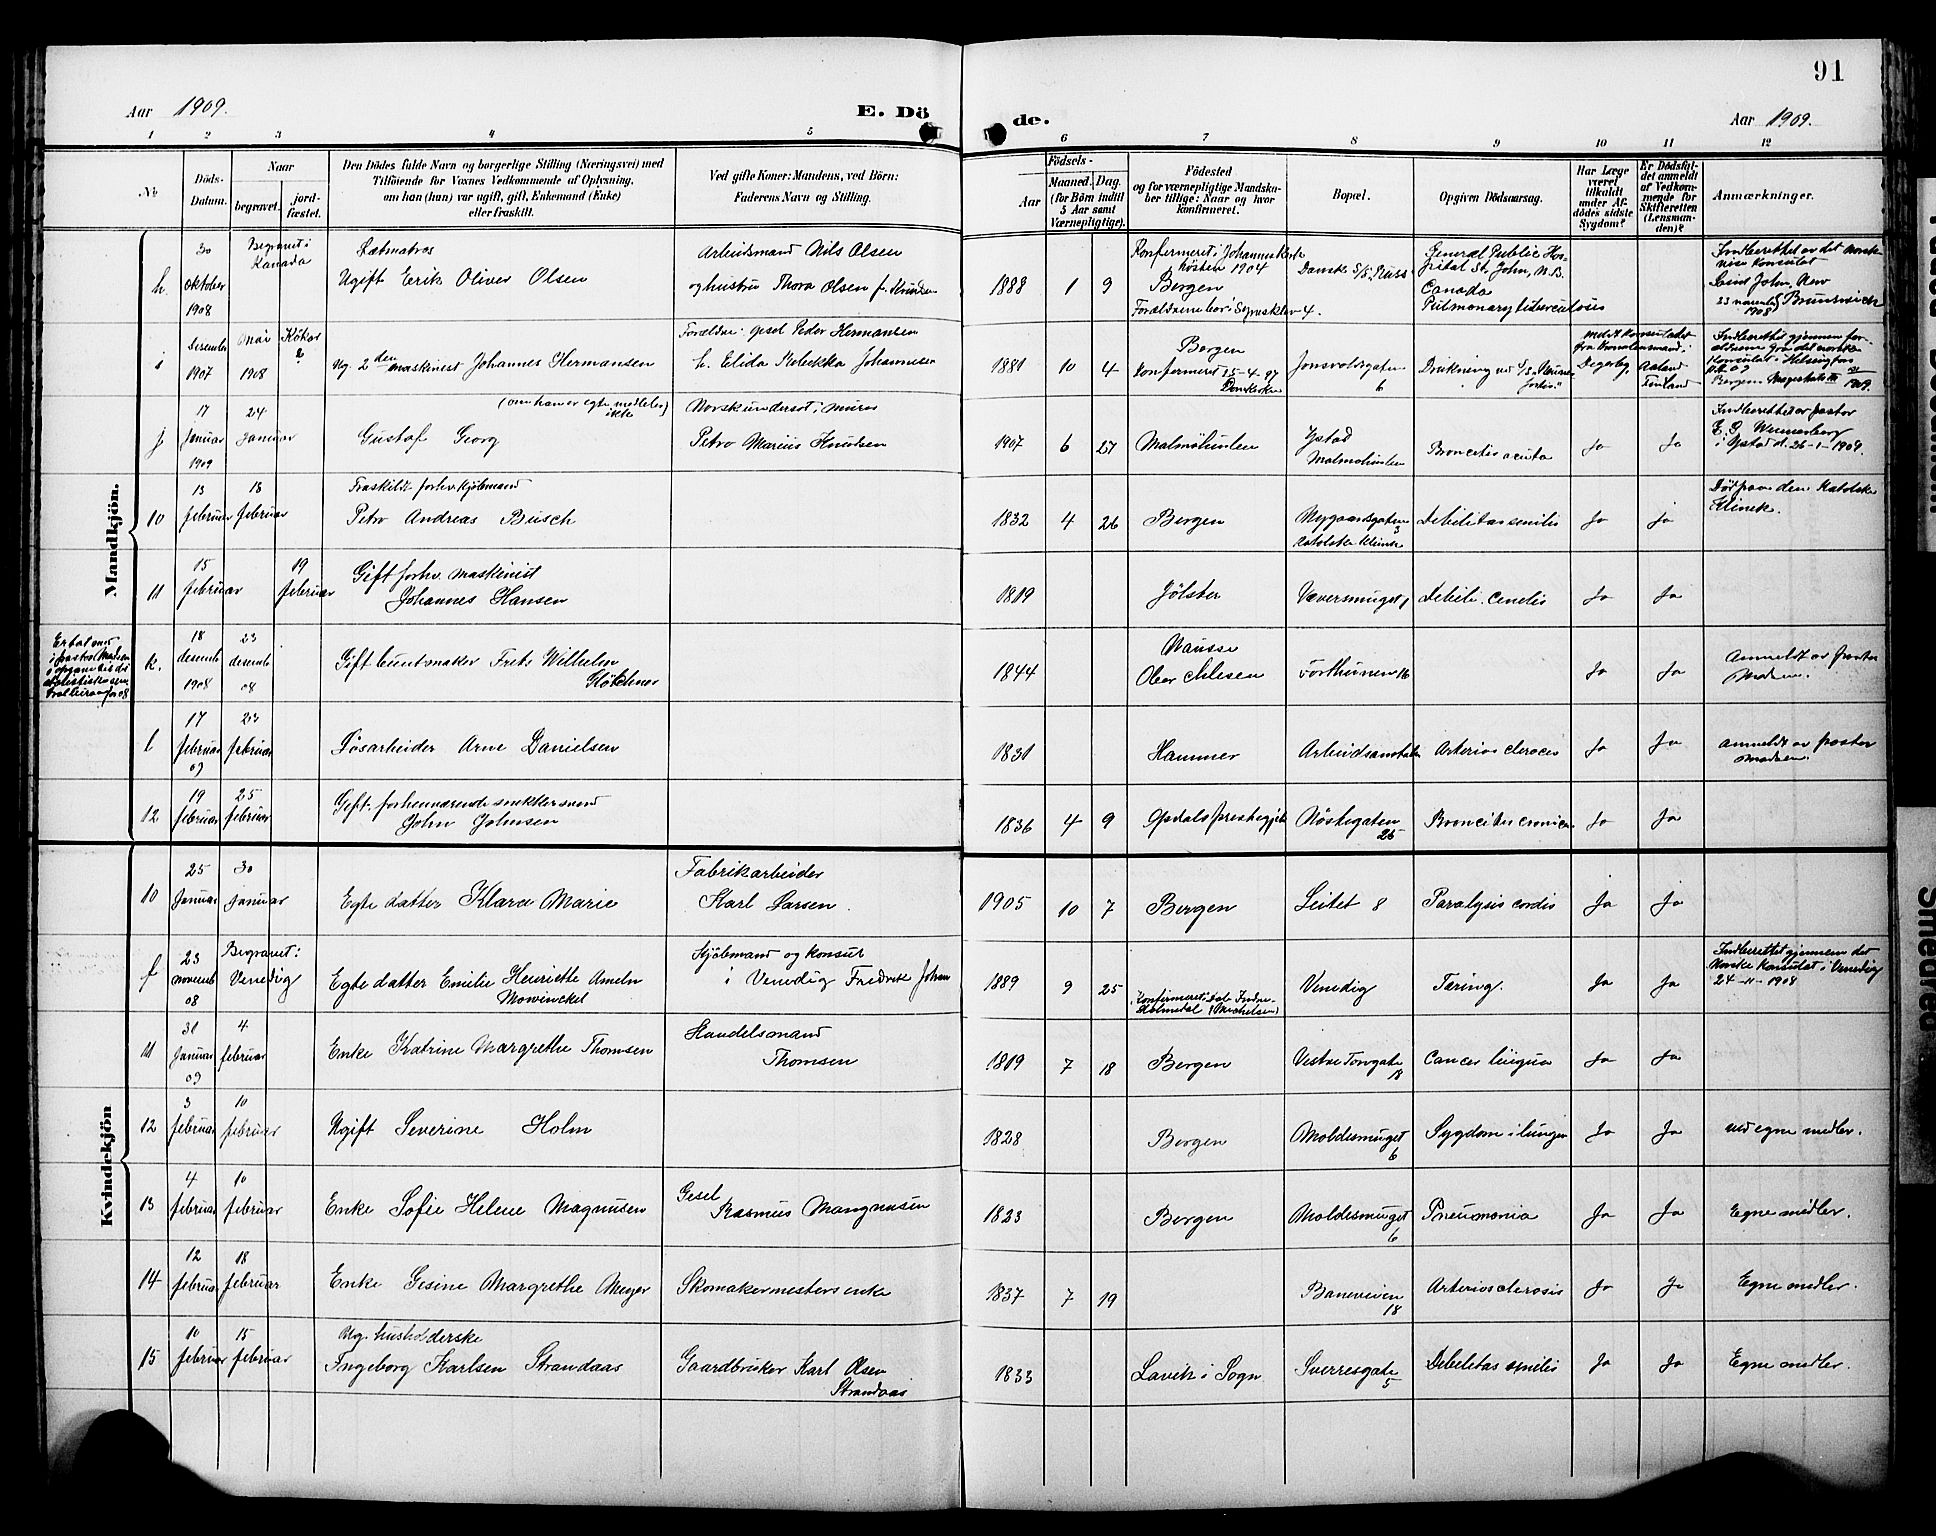 91
Aar 1909.
E. Dö
de.
Aar 1909.
1 2 3 4 5 6 7 8 9 10 11 12
No
Döds-
Datum.
Naar
begravet.
jord-
fæstet.
Den Dödes fulde Navn og borgerlige Stilling (Næringsvei) med
Tilföiende for Voxnes Vedkommende af Oplysning,
om han (hun) var ugift, gift, Enkemand (Enke)
eller fraskilt.
Ved gifte Koner: Mandens, ved Börn:
Faderens Navn og Stilling.
Aar
Födsels-
Maaned. Dag.
(for Börn indtil
5 Aar samt
Værnepligtige).
Födested
og for værnepligtige Mandska-
ber tillige: Naar og hvor
konfirmeret.
Bopæl.
Opgiven Dödsaarsag.
Har Læge
været
tilkaldt
under Af-
dödes sidste
Sygdom?
Er Dödsfal-
det anmeldt
af Vedkom-
mende for
Skifteretten
(Lensman-
den)?
Anmærkninger.
Mandkjön.
h.
30
oktober
1908
Begravet i
Kanada
Letmatros
Ugift Erik Oliver Olsen
Arbeidsmand Nils Olsen
og hustru Thora Olsen f. Knudsen
1888 1 9
Konfirmeret i Johanneskirke
høsten 1904
Bergen
Dansk S/S. Russ
General Public Hos-
pital St. John, N.B.
Canada
Pulmonary tuberculosis
Indberettet av det norske
vise Konsulat
Saint John, New
Brunswick
23 novemb
1908
i
Desember
1907
Mai
1908
Kökar
?
Ug. 2den maskinist Johannes Hermansen
Forældre: gsel Peder Hermansen
h. Elida Rebekka Johannesen
1881 10 4
Bergen
Konfirmeret 25-4-97
Domkirken
Jonsvoldsgaten
6
Drukning ved S/S
Degerby, Aaland
Finland
j
17
Januar
1909
24
januar
(om han er egte meddeles
ikke)
Gustaf Georg
Norsk undersot; murer
Petro Marius Knudsen
1907 6 27
Malmøhuslen
Ystad
Malmøhuslen
Broncitis acuta
Ja Ja
Indberettet av pastor
E. G. Wennerberg
i Ystad d. 26-1-1909.
10
13
februar
18
februar
Fraskilt forhv. kjöbmand
Petro Andreas Busch
1832 4 26
Bergen
Nygaardsgaten 3
katolske klinik
Debilitas senilis
Ja Ja
Död paa den Katolske
Klinik.
11
15
februar
19
februar
Gift forhv. maskinist
Johannes Hansen
1819
Jölster
Væversmuget 1
Debili. cenilis
Ja Ja
k.
18
desemb
1908
23
desemb
08
Gift buntmaker Frits Wilhelm
1844
Ober
16
Ja Ja
Anmeldt av pastor
Madsen.
l
17
februar
09
23
februar
Løsarbeider Arne Danielsen
1831
Hammer
Arbeidsanstalten
Arterios clerosis
Ja Ja
anmeldt av pastor
Madsen.
12
19
februar
25
februar
Gift. forhenværende snekkersvend
John Johnsen
1836 4 9
Opdals prestegjeld
Nöstegaten
25
Broncitis cronica
Ja Ja
Kvindekjön
10
25
Januar
30
januar
Egte datter Klara Marie
Fabrikarbeider
Karl Larsen.
1905 10 7
Bergen
Leitet 8
Paralysis cordis
Ja Ja
f
23
novemb
08
Begravet:
Venedig
Egte datter Emilie Henriette Ameln
Mowinckel
Kjöbmand og konsul
i Venedig Fredrik Johan
1889 9 25
Venedig
Tæring.
Ja Ja
Indberettet gjennem det
Norske Konsulat i Venedig
24-11-1908
11
31
Januar
09
4
februar
Enke Katrine Margrethe Thomsen
Handelsmand
Thomsen
1819 7 18
Bergen
Vestre Torvgate
18
Cancer lingua
Ja Ja
12
3
februar
10
februar
Ugift Severine Holm
1828
Bergen
Moldesmuget
6
Sygdom i lungen
Ja Ja
ved egne midler.
13
4
februar
10
februar
Enke Sofie Helene Magnusen
Gesel
Rasmus Mangnusen
1823
Bergen
Moldesmuget
6
Pneumonia
Ja Ja
Egne midler.
14
12
februar
18
februar
Enke Gesine Margrethe Meyer
Skomakermesters enke
1837 7 19
Baneveien
18
Arterios clerosis
Ja Ja
Egne midler.
15
10
februar
15
februar
Ug. husholderske
Ingeborg Karlsen Strandaas
Gaardbruker Karl Olsen
Strandaas
1833
Lavik i Sogn
Sverresgate
5
Debilitas senilis
Ja Ja
Egne midler.